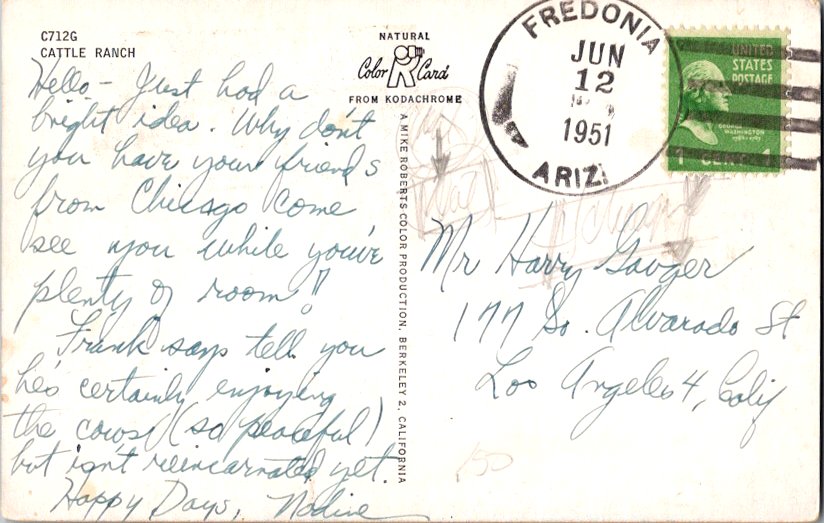 C712G
CATTLE RANCH
Hello - Just had a
bright idea. Why don't
you have your friends
from Chicago come
see you while you've
plenty of room!!
Frank says tell you
he's certainly enjoying
the cows (so peaceful)
but isn't reincarnated yet.
Happy Days, Nadine
NATURAL
Color Card
FROM KODACHROME
A MIKE ROBERTS COLOR PRODUCTION, BERKELEY 2, CALIFORNIA
FREDONIA
JUN
12
1951
ARIZ.
UNITED
STATES
POSTAGE
GEORGE
WASHINGTON
1 CENT 1
Mr Harry Gauger
177 So. Alvarado St
Los Angeles 4, Calif